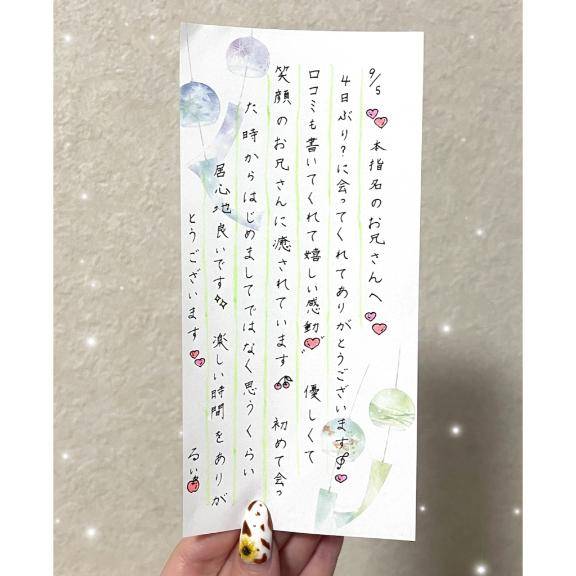 9/5 本指名のお兄さんへ
4日ぶり?に会ってくれてありがとうございます
口コミも書いてくれて嬉しい感動 優しくて
笑顔のお兄さんに癒されています 初めて会っ
た時からはじめましてではなく思うくらい
居心地良いです 楽しい時間をありが
とうございます るい